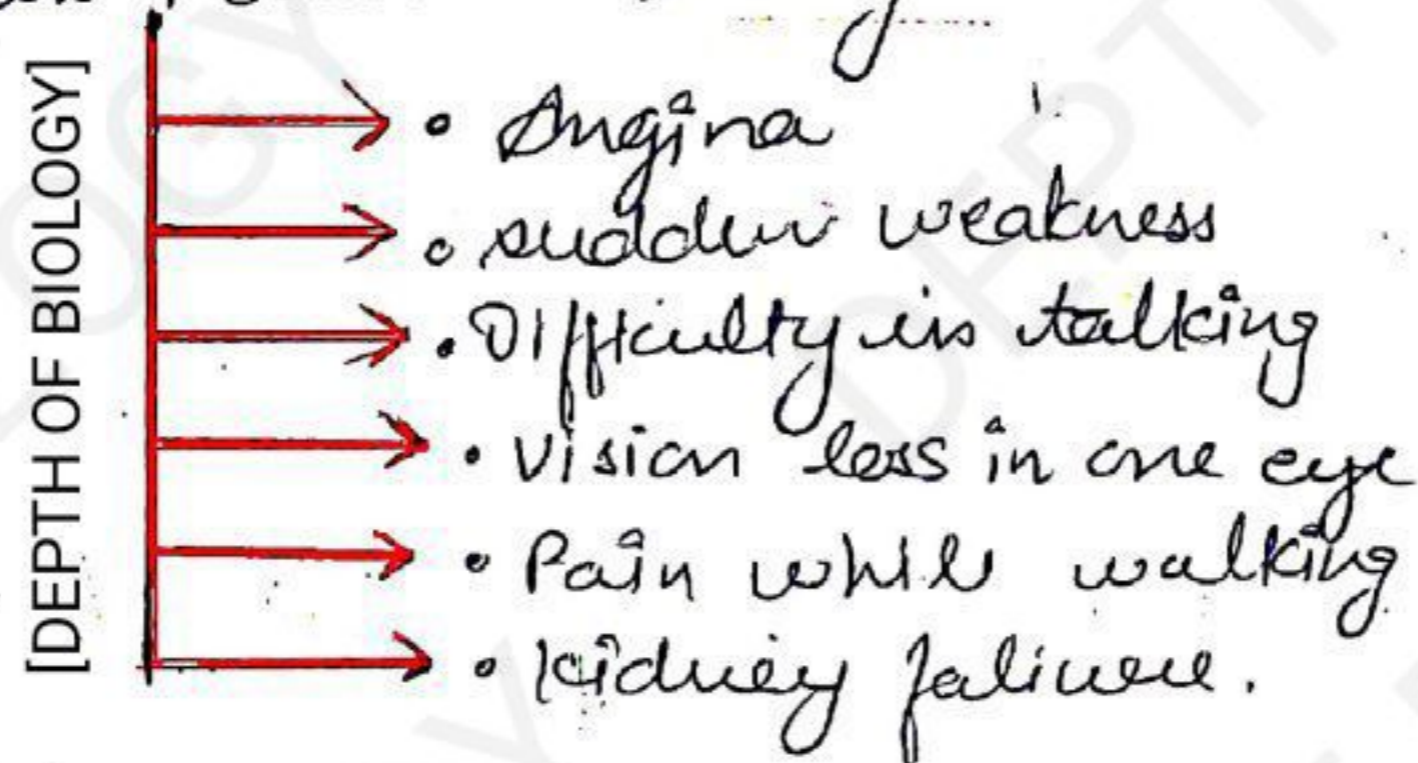 [DEPTH OF BIOLOGY]
• Angina
• sudden weakness
• Difficulty in talking
• Vision loss in one eye
• Pain while walking
• kidney faliure.